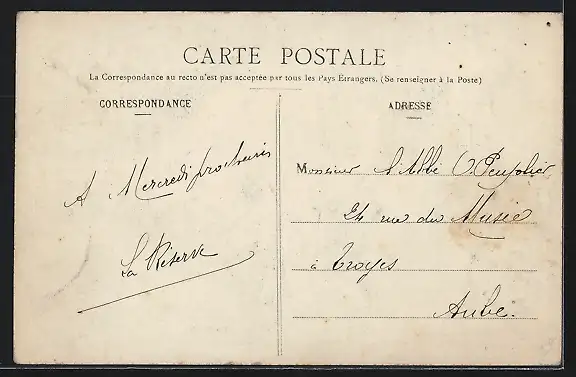 CARTE POSTALE
La Correspondance au recto n'est pas acceptée par tous les Pays Étrangers. (Se renseigner à la Poste)
CORRESPONDANCE
A Mercredi prochain
La Réserve
ADRESSE
Monsieur l'Abbé
24 rue du Musée
à Troyes
Aube.